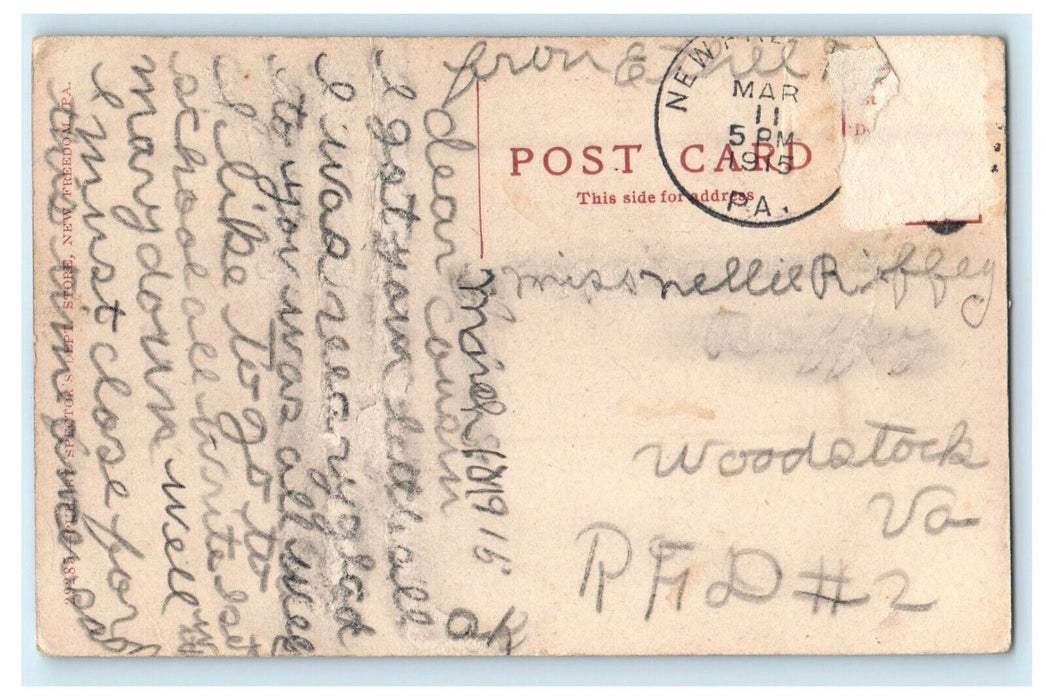 from E Hill
NEW FREE
MAR
11
5 PM
1915
PA.
POST CARD
This side for address
Miss Nellie Riffey
Woodstock
Va
RFD #2
1915
dear cousin
I got your letter all
OK
I was reary glad
to you was all well
I like to go to
school all
mary down well
I must close for
this
SPECTOR'S DEPT. STORE, NEW FREEDOM, PA.